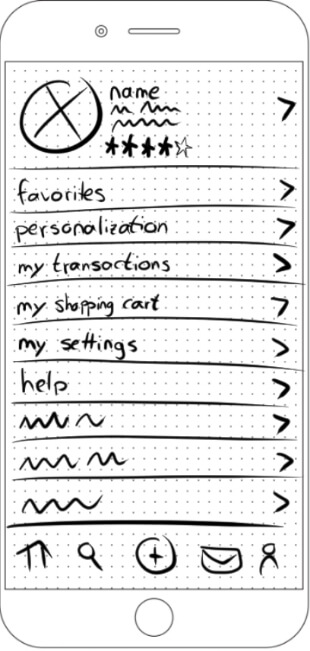 name
favorites
personalization
my transactions
my shopping cart
my settings
help